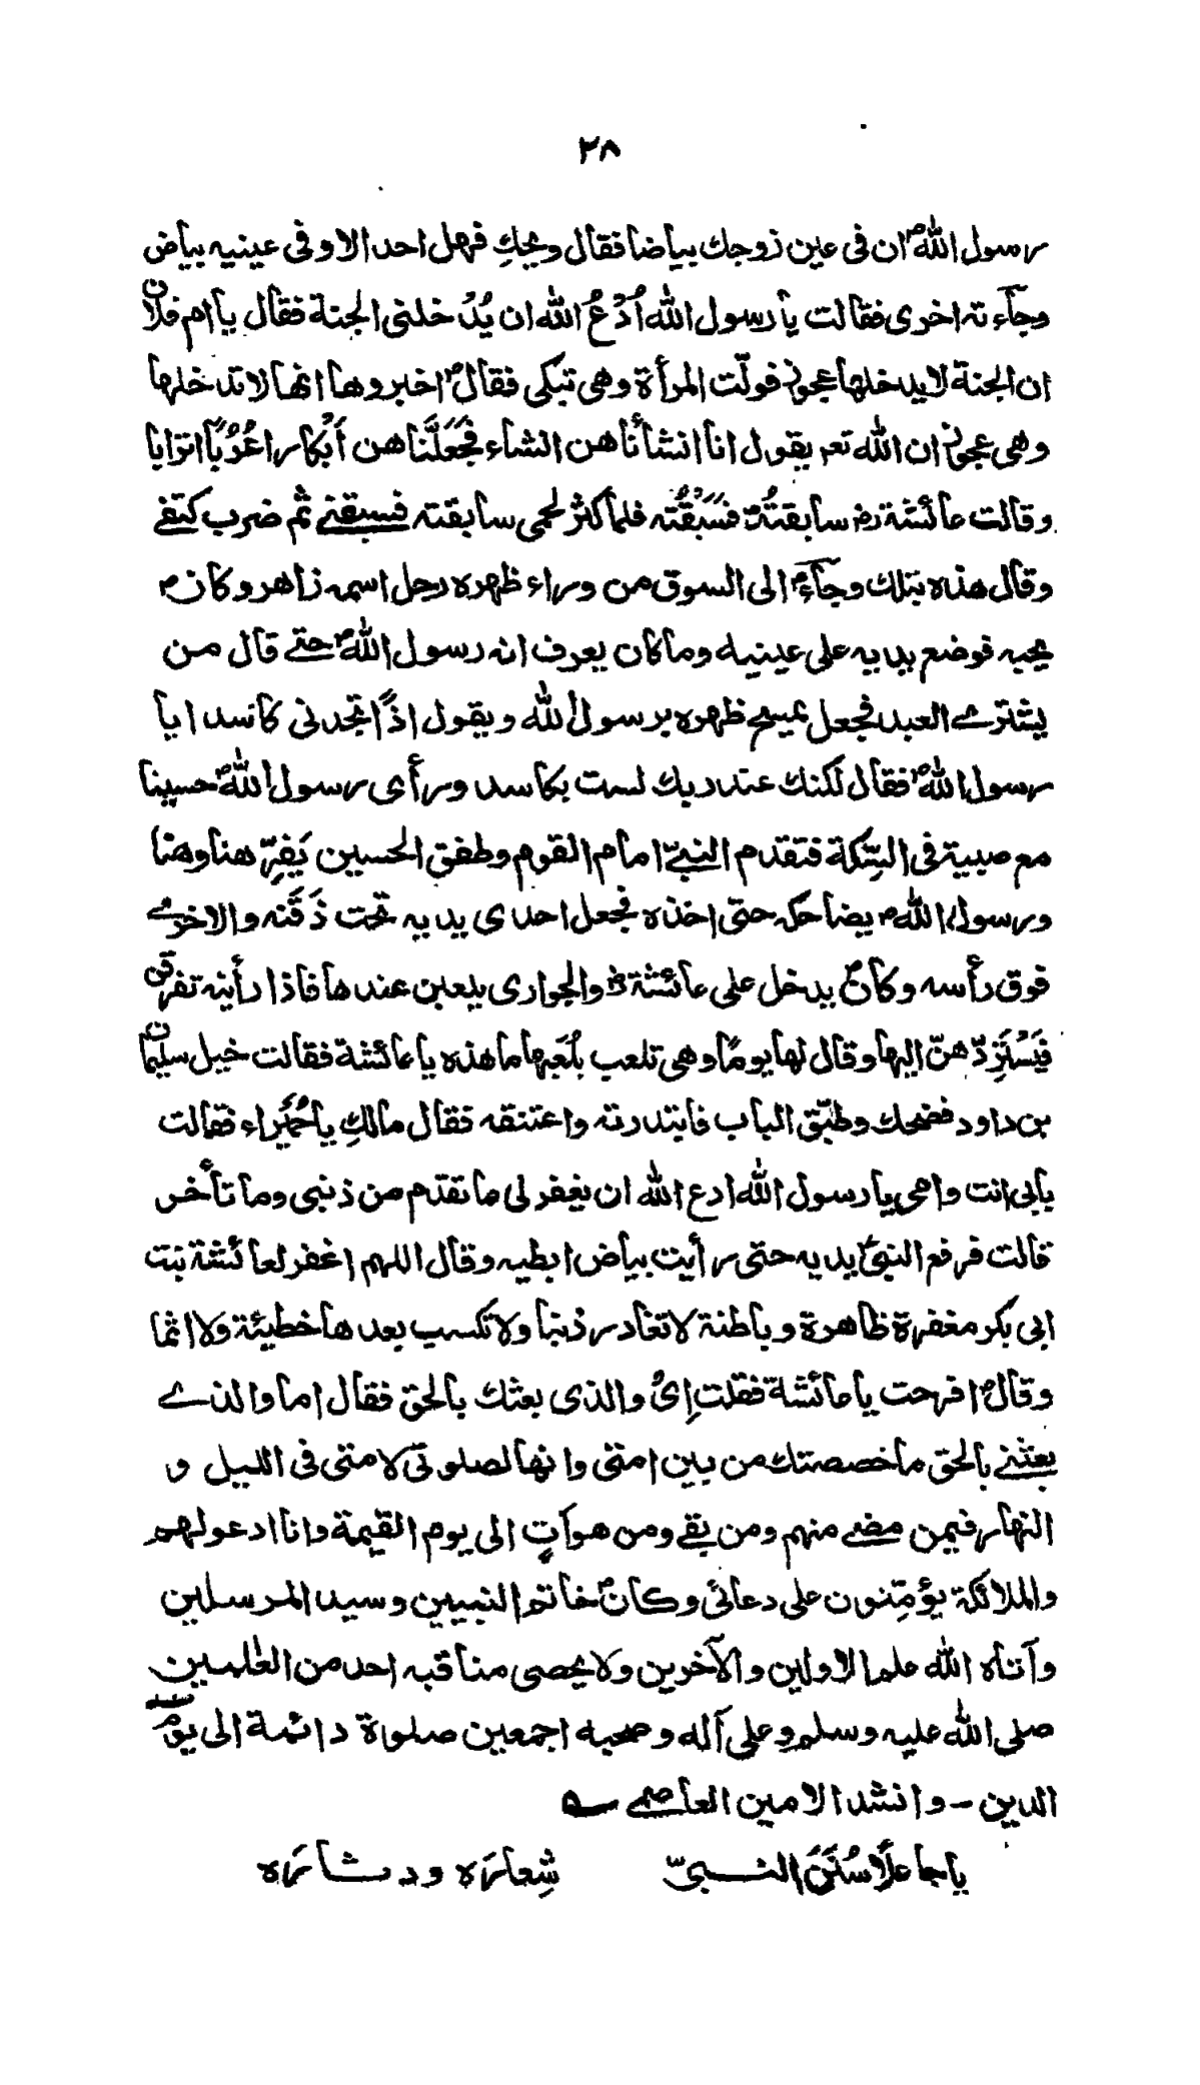 ٢٨
رسول اللهؐ ان فى عين زوجك بياضا فقال ويحكِ فهل احد الا وفى عينيه بياض
وجآءته اخرى فقالت يا رسول الله اُدْعُ الله ان يُدْخلنى الجنة فقال يا ام فلان
ان الجنة لا يدخلها عجوز فولّت المرأة وهى تبكى فقالؐ اخبروها انها لا تدخلها
وهى عجوز ان الله تعم يقول انا انشأناهن انشاء فَجَعَلْنَاهن أَبْكارا عُرُبًا اترابا
وقالت عائشة رض سابقتُهؐ فَسَبَقْتُه فلما كثر لحمى سابقته فسبقنے ثم ضرب كتفے
وقال هذه بتلك وجآءؐ الى السوق من وراء ظهره رجل اسمه زاهر وكان م
يحبه فوضع يديه على عينيه وما كان يعرف انه رسول اللهؐ حتے قال من
يشترے العبد فجعل يمسح ظهره برسول الله ويقول اذًا تجدنى كاسدا يا
رسول اللهؐ فقال لكنك عند ربك لست بكاسد ورأى رسول اللهؐ حسينا
مع صبية فى السِّكة فتقدم النبىّ امام القوم وطفق الحسين يَفِرّ هنا وهنا
ورسول الله م يضاحكه حتى اخذه فجعل احدى يديه تحت ذَقَنه والاخرے
فوق رأسه وكانؐ يدخل على عائشة رض والجوارى يلعبن عندها فاذا رأينه تفرقن
فَيَسْتَرِدّهنّ اليها وقال لها يومًا وهى تلعب بلُعَبها ما هذه يا عائشة فقالت خيل سليمان
بن داود فضحك وطبّق الباب فابتدرته واعتنقه فقال مالكِ يا حُمَيْراء فقالت
بابى انت وامى يا رسول الله ادع الله ان يغفر لى ما تقدّم من ذنبى وما تأخر
قالت فرفع النبىؐ يديه حتى رأيت بياض ابطيه وقال اللهم اغفر لعائشة بنت
ابى بكر مغفرة ظاهرة وباطنة لا تغادر ذنبا ولا تكسب بعدها خطيئة ولا اثما
وقالؐ افرحت يا عائشة فقلت اِىْ والذى بعثك بالحق فقال اما والذے
بعثنے بالحق ما خصصتك من بين امتى وانها لصلوتى لامتى فى الليل و
النهار فيمن مضے منهم ومن بقے ومن هو آتٍ الى يوم القيمة وانا ادعو لهم
والملائكة يؤمّنون على دعائى وكانؐ خاتم النبيين وسيد المرسلين
وآتاه الله علم الاولين والآخرين ولا يحصى مناقبه احد من العٰلمين
صلى الله عليه وسلم وعلى آله وصحبه اجمعين صلواة دائمة الى يوم
الدين – وانشد الامين العاصمے ؎
يا جاعلًا سُنَنَ النبىّ شِعارَه ودثارَه